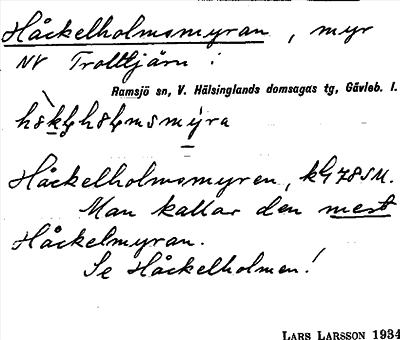 Håckelholmsmyran, myr
NV Trolltjärn:
Ramsjö sn, V. Hälsinglands domsagas tg, Gävleb. l.
Håckelholmsmyren, kG 78SM.
Man kallar den mest
Håckelmyran.
Se Håckelholmen!
LARS LARSSON 1934